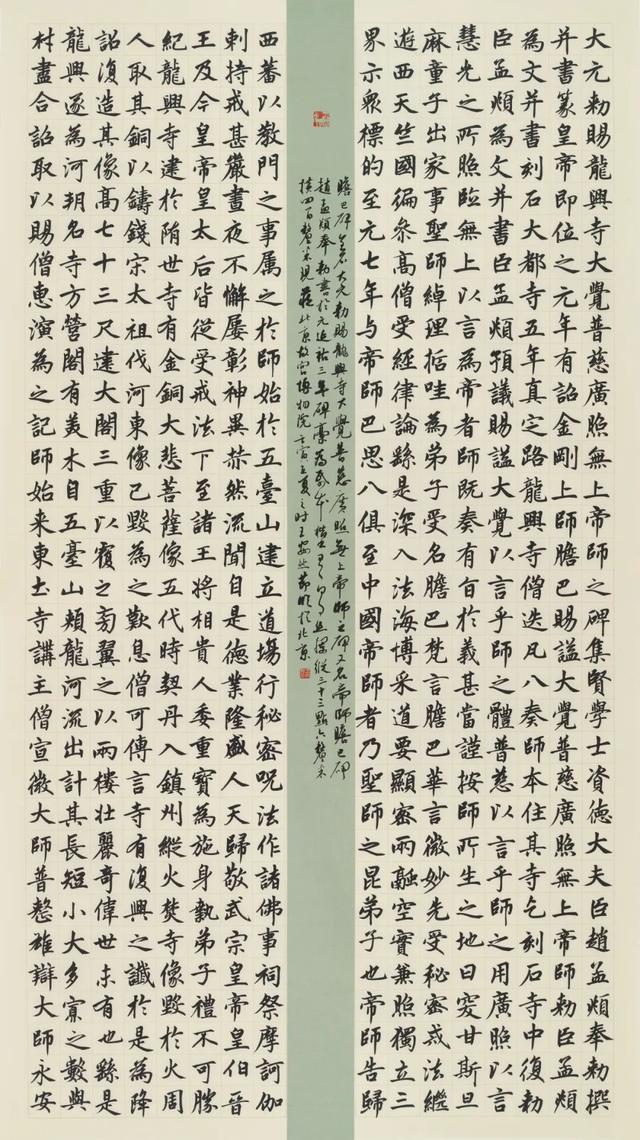 大元勅賜龍興寺大覺普慈廣照無上帝師之碑集賢學士資徳大夫臣趙孟頫奉勅撰
并書篆皇帝即位之元年有詔金剛上師膽巴賜謚大覺普慈廣照無上帝師勅臣孟頫
為文并書刻石大都寺五年真定路龍興寺僧迭凡八奏師本住其寺乞刻石寺中復勅
臣孟頫為文并書臣孟頫預議賜謚大覺以言乎師之體普慈以言乎師之用廣照以言
慧光之所照臨無上以言為帝者師既奏有旨於義甚當謹按師所生之地曰突甘斯旦
麻童子出家事聖師綽理括哇為弟子受名膽巴梵言膽巴華言微妙先受秘密戒法繼
遊西天竺國徧叅高僧受經律論繇是深入法海博采道要顯密兩融空實兼照獨立三
界示衆標的至元七年与帝師巴思八俱至中國帝師者乃聖師之昆弟子也帝師告歸
膽巴碑全名大元勅賜龍興寺大覺普慈廣照無上帝師之碑又名帝師膽巴碑
趙孟頫奉勅書於元延祐三年碑藁為紙本楷書縱三十三點六釐米
横釐米現藏北京故宮博物院壬寅立夏之時王臨於北京
西蕃以教門之事属之於師始於五臺山建立道塲行秘密呪法作諸佛事祠祭摩訶伽
剌持戒甚嚴晝夜不懈屢彰神異赫然流聞自是徳業隆盛人天歸敬武宗皇帝皇伯晉
王及今皇帝皇太后皆從受戒法下至諸王將相貴人委重寳為施身執弟子禮不可勝
紀龍興寺建於隋世寺有金銅大悲菩薩像五代時契丹入鎮州縱火焚寺像毀於火周
人取其銅以鑄錢宋太祖伐河東像已毀為之歎息僧可傳言寺有復興之讖於是為降
詔復造其像高七十三尺建大閣三重以覆之旁翼之以兩樓壯麗奇偉世未有也繇是
龍興遂為河朔名寺方營閣有美木自五臺山頬龍河流出計其長短小大多寡之數與
材盡合詔取以賜僧惠演為之記師始来東土寺講主僧宣微大師普整雄辯大師永安